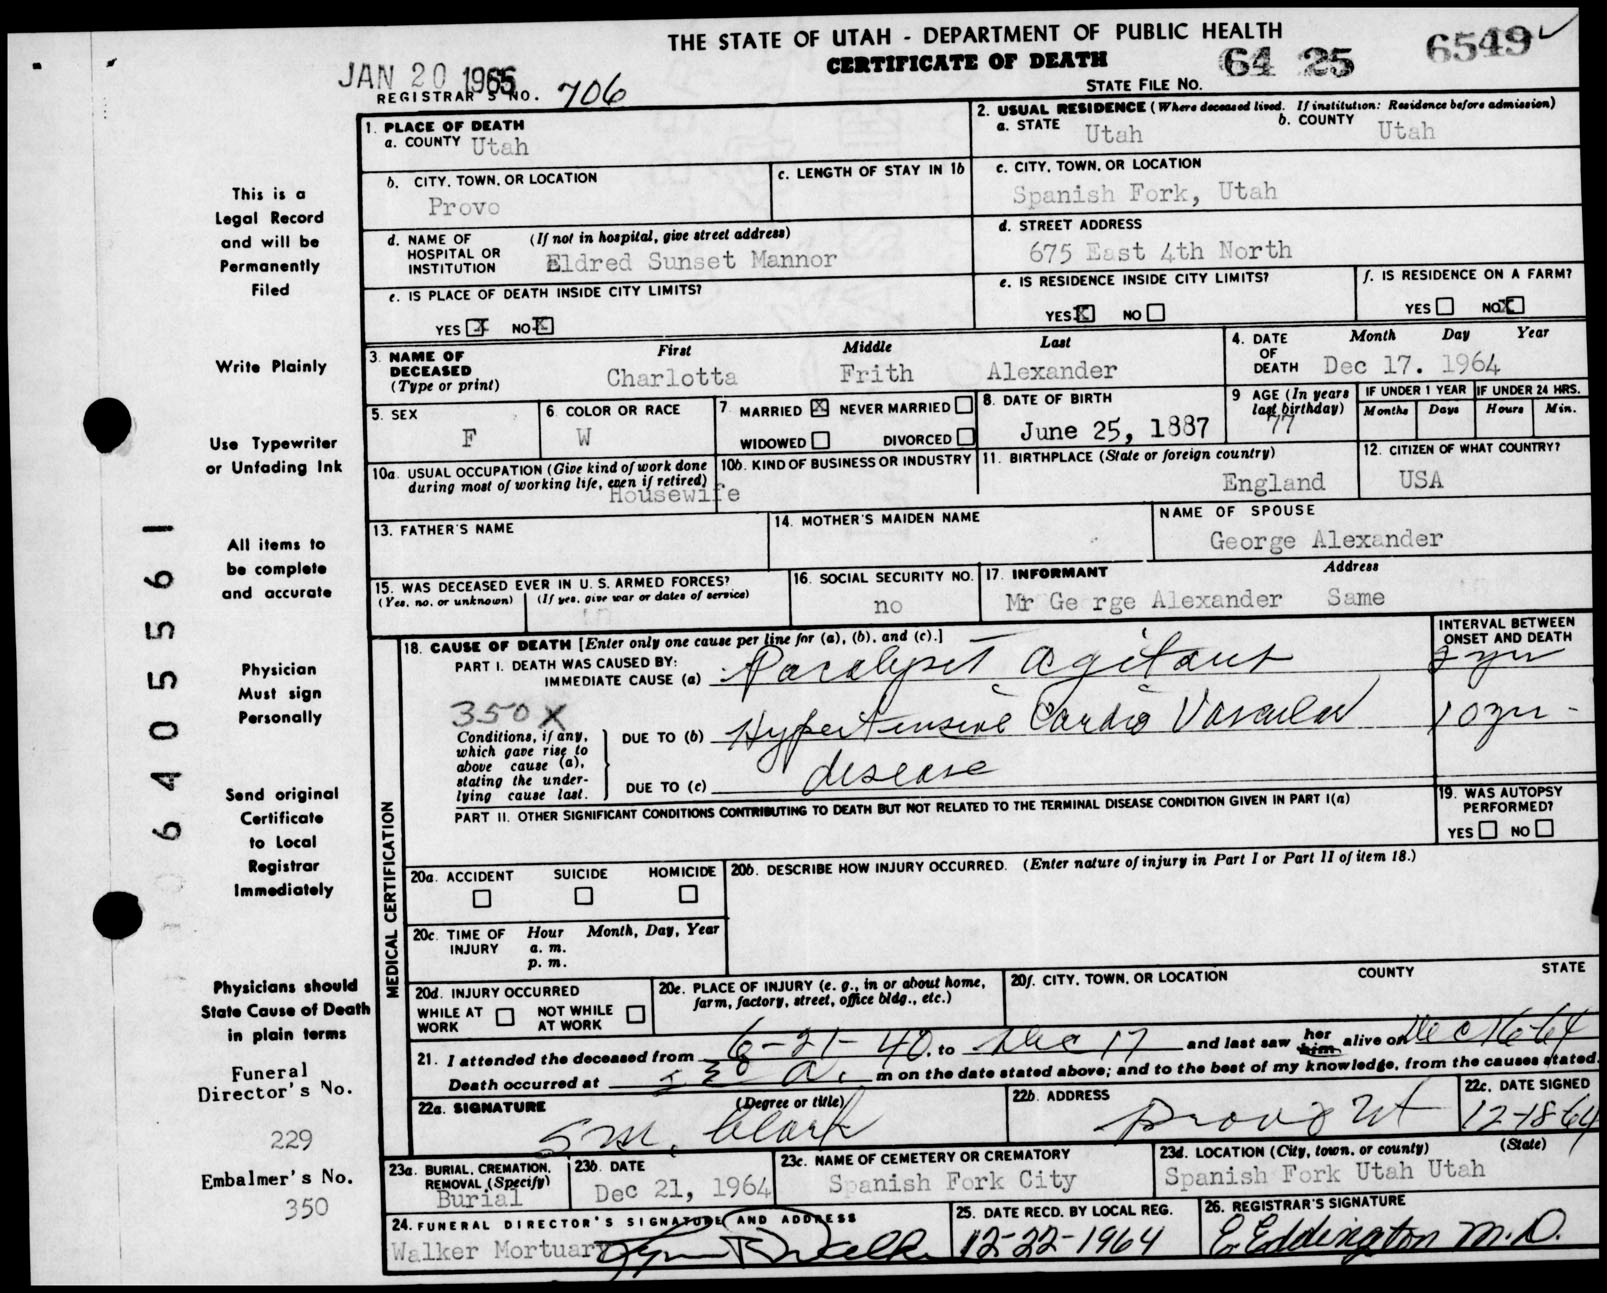 THE STATE OF UTAH - DEPARTMENT OF PUBLIC HEALTH
CERTIFICATE OF DEATH
64 25 6549
STATE FILE NO.
JAN 20 1965
REGISTRAR'S NO. 706
1. PLACE OF DEATH
a. COUNTY Utah
2. USUAL RESIDENCE (Where deceased lived. If institution: Residence before admission)
a. STATE Utah b. COUNTY Utah
b. CITY, TOWN, OR LOCATION Provo
c. LENGTH OF STAY IN 1b
c. CITY, TOWN, OR LOCATION
Spanish Fork, Utah
d. NAME OF HOSPITAL OR INSTITUTION (If not in hospital, give street address)
Eldred Sunset Mannor
d. STREET ADDRESS
675 East 4th North
e. IS PLACE OF DEATH INSIDE CITY LIMITS?
YES X NO X
e. IS RESIDENCE INSIDE CITY LIMITS?
YES X NO
f. IS RESIDENCE ON A FARM?
YES NO X
3. NAME OF DECEASED (Type or print)
First Middle Last
Charlotta Frith Alexander
4. DATE OF DEATH Month Day Year
Dec 17. 1964
5. SEX F
6. COLOR OR RACE W
7. MARRIED X NEVER MARRIED
WIDOWED DIVORCED
8. DATE OF BIRTH
June 25, 1887
9 AGE (In years last birthday) 77
IF UNDER 1 YEAR Months Days
IF UNDER 24 HRS. Hours Min.
10a. USUAL OCCUPATION (Give kind of work done during most of working life, even if retired)
Housewife
10b. KIND OF BUSINESS OR INDUSTRY
11. BIRTHPLACE (State or foreign country)
England
12. CITIZEN OF WHAT COUNTRY?
USA
13. FATHER'S NAME
14. MOTHER'S MAIDEN NAME
NAME OF SPOUSE
George Alexander
15. WAS DECEASED EVER IN U. S. ARMED FORCES?
(Yes, no, or unknown) (If yes, give war or dates of service)
16. SOCIAL SECURITY NO.
no
17. INFORMANT Address
Mr Ge rge Alexander Same
18. CAUSE OF DEATH [Enter only one cause per line for (a), (b), and (c).]
INTERVAL BETWEEN ONSET AND DEATH
PART I. DEATH WAS CAUSED BY:
IMMEDIATE CAUSE (a) Paralysis agitans
350X
Conditions, if any, which gave rise to above cause (a), stating the underlying cause last.
DUE TO (b) Hypertensive Cardio Vascular 10 yrs -
disease
DUE TO (c)
PART II. OTHER SIGNIFICANT CONDITIONS CONTRIBUTING TO DEATH BUT NOT RELATED TO THE TERMINAL DISEASE CONDITION GIVEN IN PART I(a)
19. WAS AUTOPSY PERFORMED?
YES NO
MEDICAL CERTIFICATION
20a. ACCIDENT SUICIDE HOMICIDE
20b. DESCRIBE HOW INJURY OCCURRED. (Enter nature of injury in Part I or Part II of item 18.)
20c. TIME OF INJURY Hour Month, Day, Year
a. m.
p. m.
20d. INJURY OCCURRED
WHILE AT WORK NOT WHILE AT WORK
20e. PLACE OF INJURY (e. g., in or about home, farm, factory, street, office bldg., etc.)
20f. CITY, TOWN, OR LOCATION COUNTY STATE
21. I attended the deceased from 6-21-40, to Dec 17 and last saw her him alive on Dec 16-64
Death occurred at A. m on the date stated above; and to the best of my knowledge, from the causes stated.
22a. SIGNATURE (Degree or title)
S M. Clark
22b. ADDRESS
Provo Ut
22c. DATE SIGNED
12-18-64
23a. BURIAL, CREMATION, REMOVAL (Specify)
Burial
23b. DATE
Dec 21, 1964
23c. NAME OF CEMETERY OR CREMATORY
Spanish Fork City
23d. LOCATION (City, town, or county) (State)
Spanish Fork Utah Utah
24. FUNERAL DIRECTOR'S SIGNATURE AND ADDRESS
Walker Mortuary
25. DATE RECD. BY LOCAL REG.
12-22-1964
26. REGISTRAR'S SIGNATURE
E Eddington M.D.
This is a
Legal Record
and will be
Permanently
Filed
Write Plainly
Use Typewriter
or Unfading Ink
All items to
be complete
and accurate
Physician
Must sign
Personally
Send original
Certificate
to Local
Registrar
Immediately
Physicians should
State Cause of Death
in plain terms
Funeral
Director's No.
229
Embalmer's No.
350
64055 61